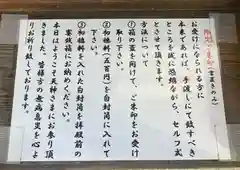 御朱印(書置きのみ)
お受けになられる方に
本来であれば、手渡しにて致すべき
ところを誠に恐縮ながら、セルフ式
とさせて頂きます。
方法について
①箱の蓋を開けて、ご朱印をお受け
取り下さい。
②初穂料(五百円)を白封筒に入れて
下さい。
③初穂料を入れた白封筒を拝殿前の
賽銭箱にお納めください。
本日はようこそ天神さまにお参り下さ
きました。皆様方の無病息災を心よ
りお祈り致しております。